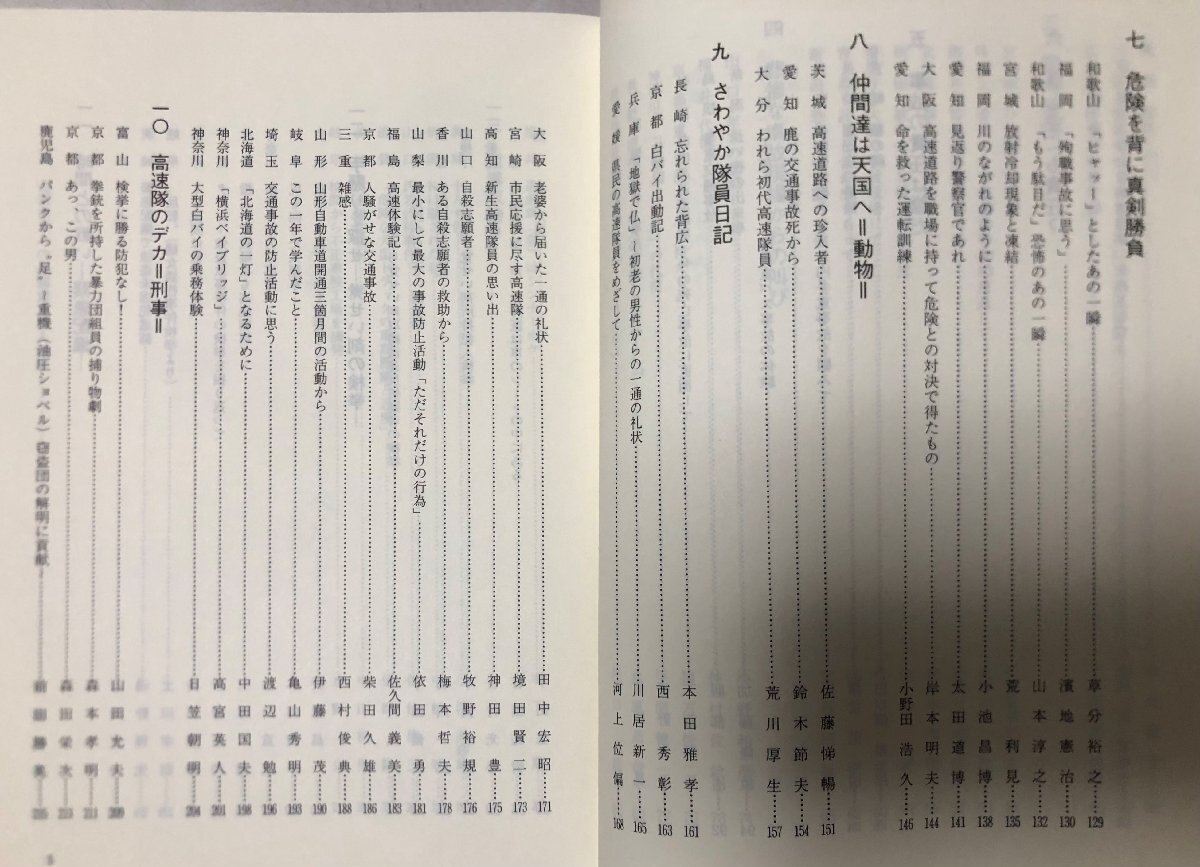 七 危険を背に真剣勝負
和歌山 「ヒャッー」としたあの一瞬………草分裕之……129
福岡 「殉職事故に思う」………濱地憲治……130
和歌山 「もう駄目だ」恐怖のあの一瞬………山本淳之……132
宮城 放射冷却現象と凍結………荒利見……135
福岡 川のながれのように………小池昌博……138
愛知 見返り警察官であれ………太田道博……141
大阪 高速道路を職場に持って危険との対決で得たもの………岸本明夫……144
愛知 命を救った運転訓練………小野田浩久……146
八 仲間達は天国へ＝動物＝
茨城 高速道路への珍入者………佐藤悌暢……151
愛知 鹿の交通事故死から………鈴木節夫……154
大分 われら初代高速隊員………荒川厚生……157
九 さわやか隊員日記
長崎 忘れられた背広………本田雅孝……161
京都 白バイ出動記………西秀彰……163
兵庫 「地獄で仏」～初老の男性からの一通の礼状………川居新一……165
愛媛 県民の高速隊員をめざして………河上位偏……168
大阪 老婆から届いた一通の礼状………田中宏昭……171
宮崎 市民応援に尽す高速隊………境田賢二……173
高知 新生高速隊員の思い出………神田豊……175
山口 自殺志願者………牧野裕規……176
香川 ある自殺志願者の救助から………梅本哲夫……178
山梨 最小にして最大の事故防止活動「ただそれだけの行為」………依田勇……181
福島 高速体験記………佐久間義美……183
京都 人騒がせな交通事故………柴田久雄……186
三重 雑感………西村俊典……188
山形 山形自動車道開通三箇月間の活動から………伊藤茂……190
岐阜 この一年で学んだこと………亀山秀明……193
埼玉 交通事故の防止活動に思う………渡辺勉……196
北海道 「北海道の一灯」となるために………中田国夫……198
神奈川 「横浜ベイブリッジ」………高宮英人……201
神奈川 大型白バイの乗務体験………日笠朝明……204
一〇 高速隊のデカ＝刑事＝
富山 検挙に勝る防犯なし！………山田尤夫……209
京都 拳銃を所持した暴力団組員の捕り物劇………森本孝明……211
京都 あっ、この男………森田栄次……213
鹿児島 パンクから〝足〟～重機（油圧ショベル）窃盗団の解明に貢献………前園勝美……215
5